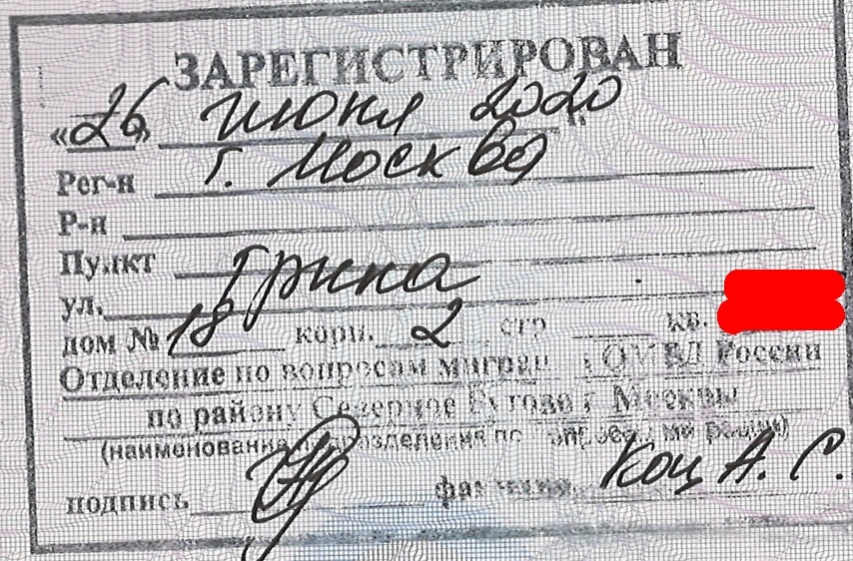 ЗАРЕГИСТРИРОВАН
«26» июня 2020
Рег-н г. Москва
Р-н
Пункт
ул. Грина
дом № 18 корп. 2 стр кв.
Отделение по вопросам миграции ОМВД России
по району Северное Бутово г. Москвы
(наименование подразделения по вопросам миграции)
подпись фамилия Коц А. С.